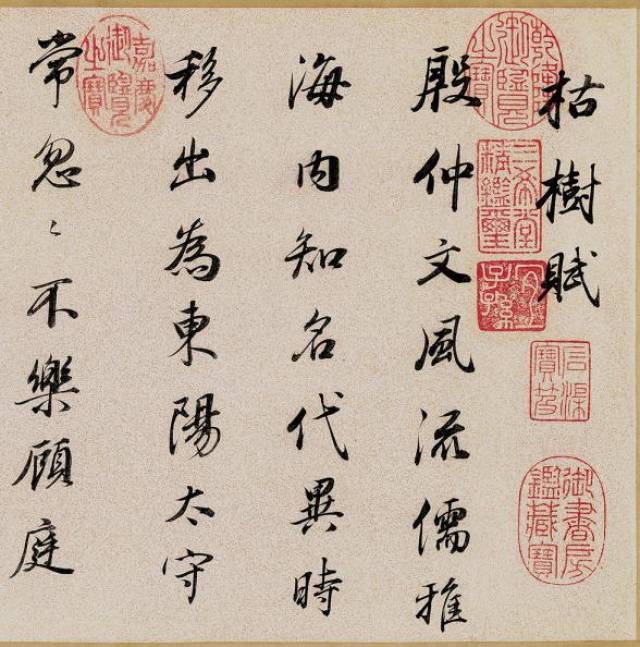 枯樹賦
殷仲文風流儒雅
海内知名代異時
移出為東陽太守
常忽〻不樂顧庭
乾隆御覽之寶
三希堂精鑑璽
宜子孫
石渠寶笈
御書房鑑藏寶
嘉慶御覽之寶